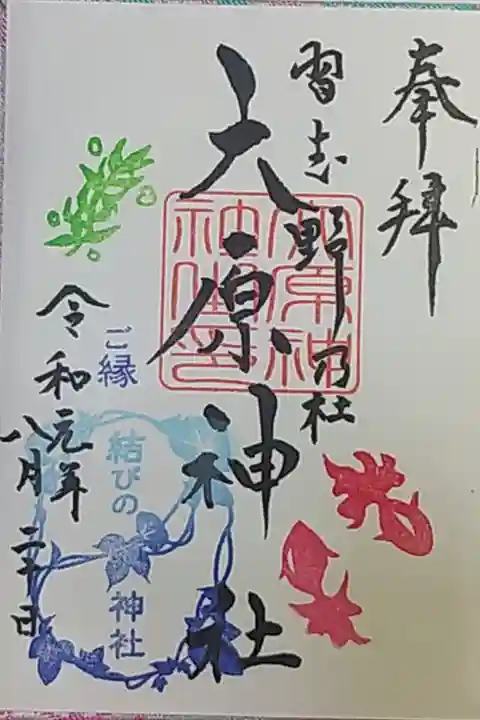 奉拝
習志野乃社
大原神社
大原神社之印
ご縁
結びの
神社
令和元年
八月二十日